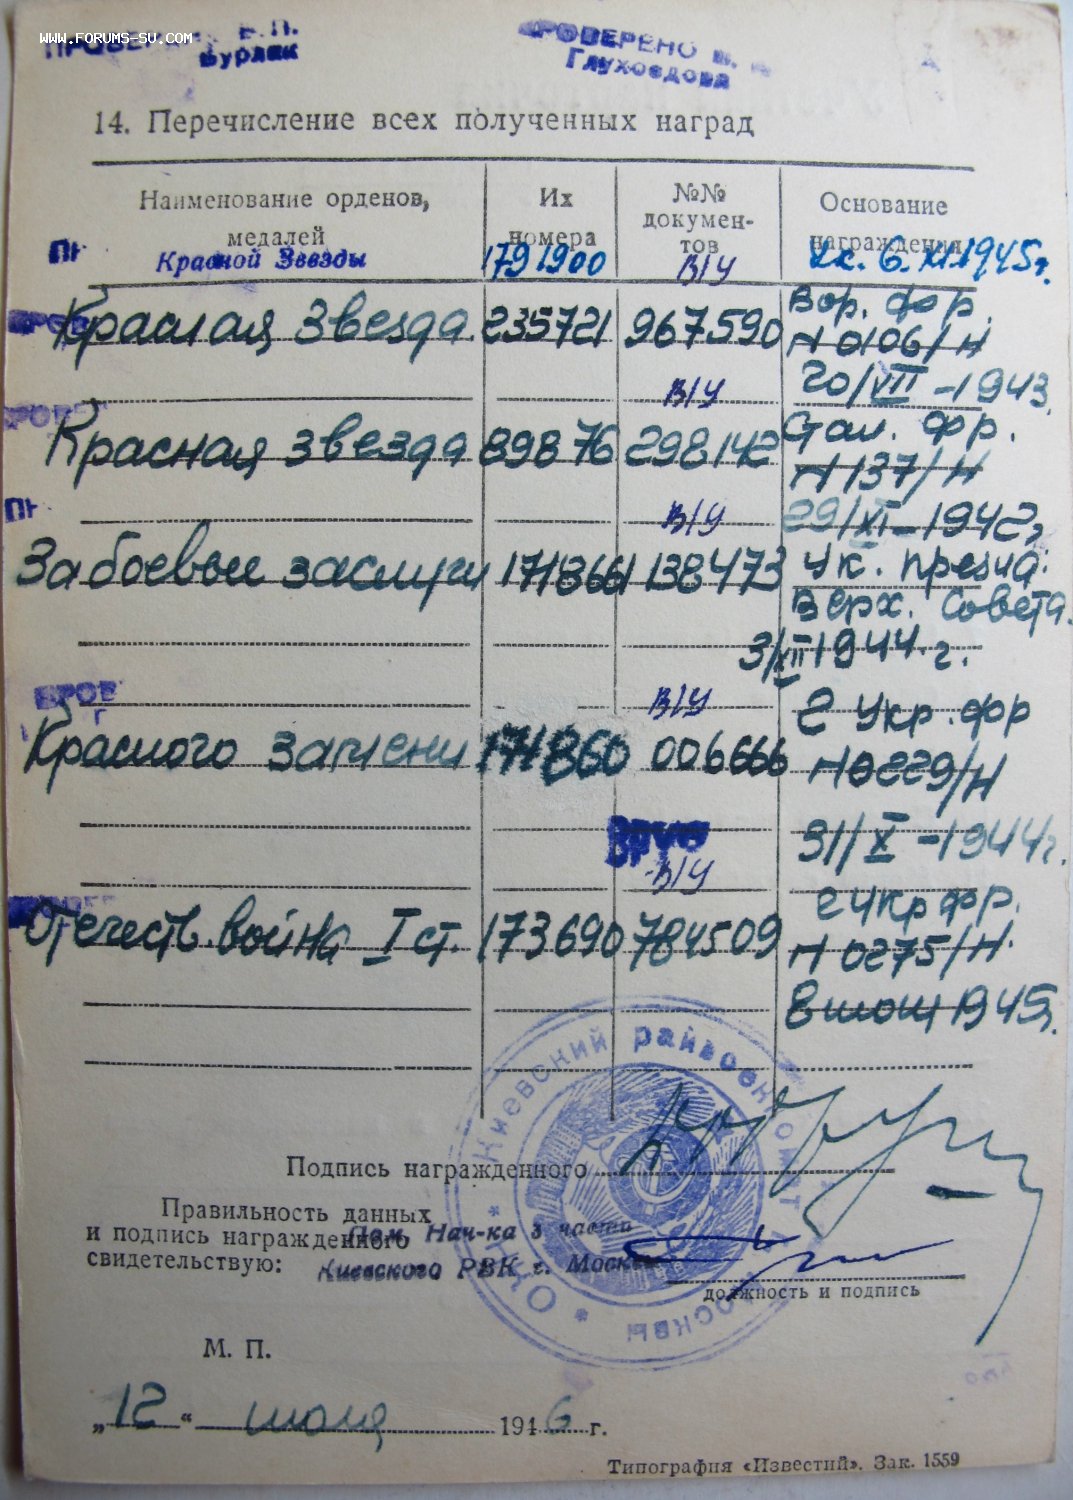 www.forums-su.com
Бурлак
ПРОВЕРЕНО В.
Глухоедова
14. Перечисление всех полученных наград
Наименование орденов, медалей
Их номера
№№ документов
Основание награждения
Красной Звезды 1791900 В/У Ук. 6.XI.1945г.
Красная Звезда 235721 967590 Вор. фр.
Н 0106/Н
В/У 20/VII-1943
Красная звезда 89876 298142 Стал. фр.
Н 137/Н
В/У 29/XI-1942г
За боевые заслуги 171866 138473 Ук. Презид.
Верх. Совета
3/XII 1944.г.
В/У 2 Укр. фр
Красного знамени 171860 006666 Н 0229/Н
31/X-1944г.
В/У 2 Укр фр.
Отечеств. война I ст. 173690 784509 Н 0275/Н
8 июня 1945г.
Киевский райвоенкомат г. Москвы
Подпись награжденного
Правильность данных
и подпись награжденного Пом. Нач-ка 3 части
свидетельствую: Киевского РВК г. Москвы
должность и подпись
М. П.
„12“ июля 1946 г.
Типография «Известий». Зак. 1559